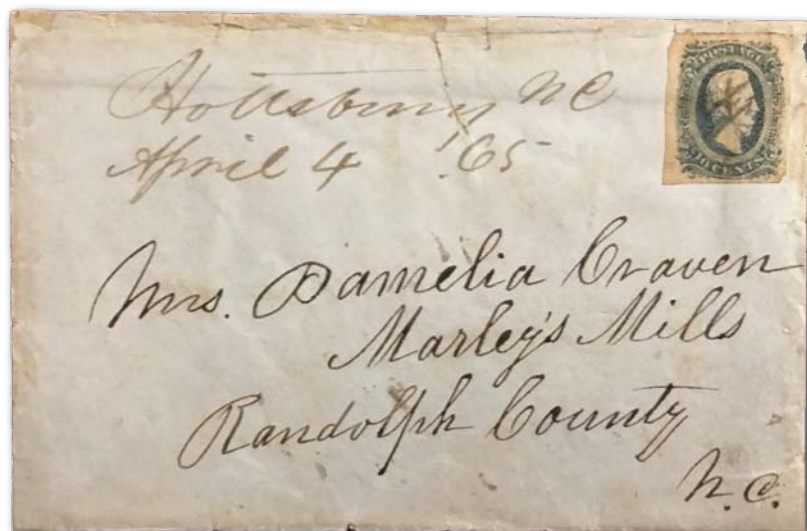 Holtsburg NC
April 4 '65
POSTAGE
CENTS
Mrs. Pamelia Craven
Marley's Mills
Randolph County
N.C.